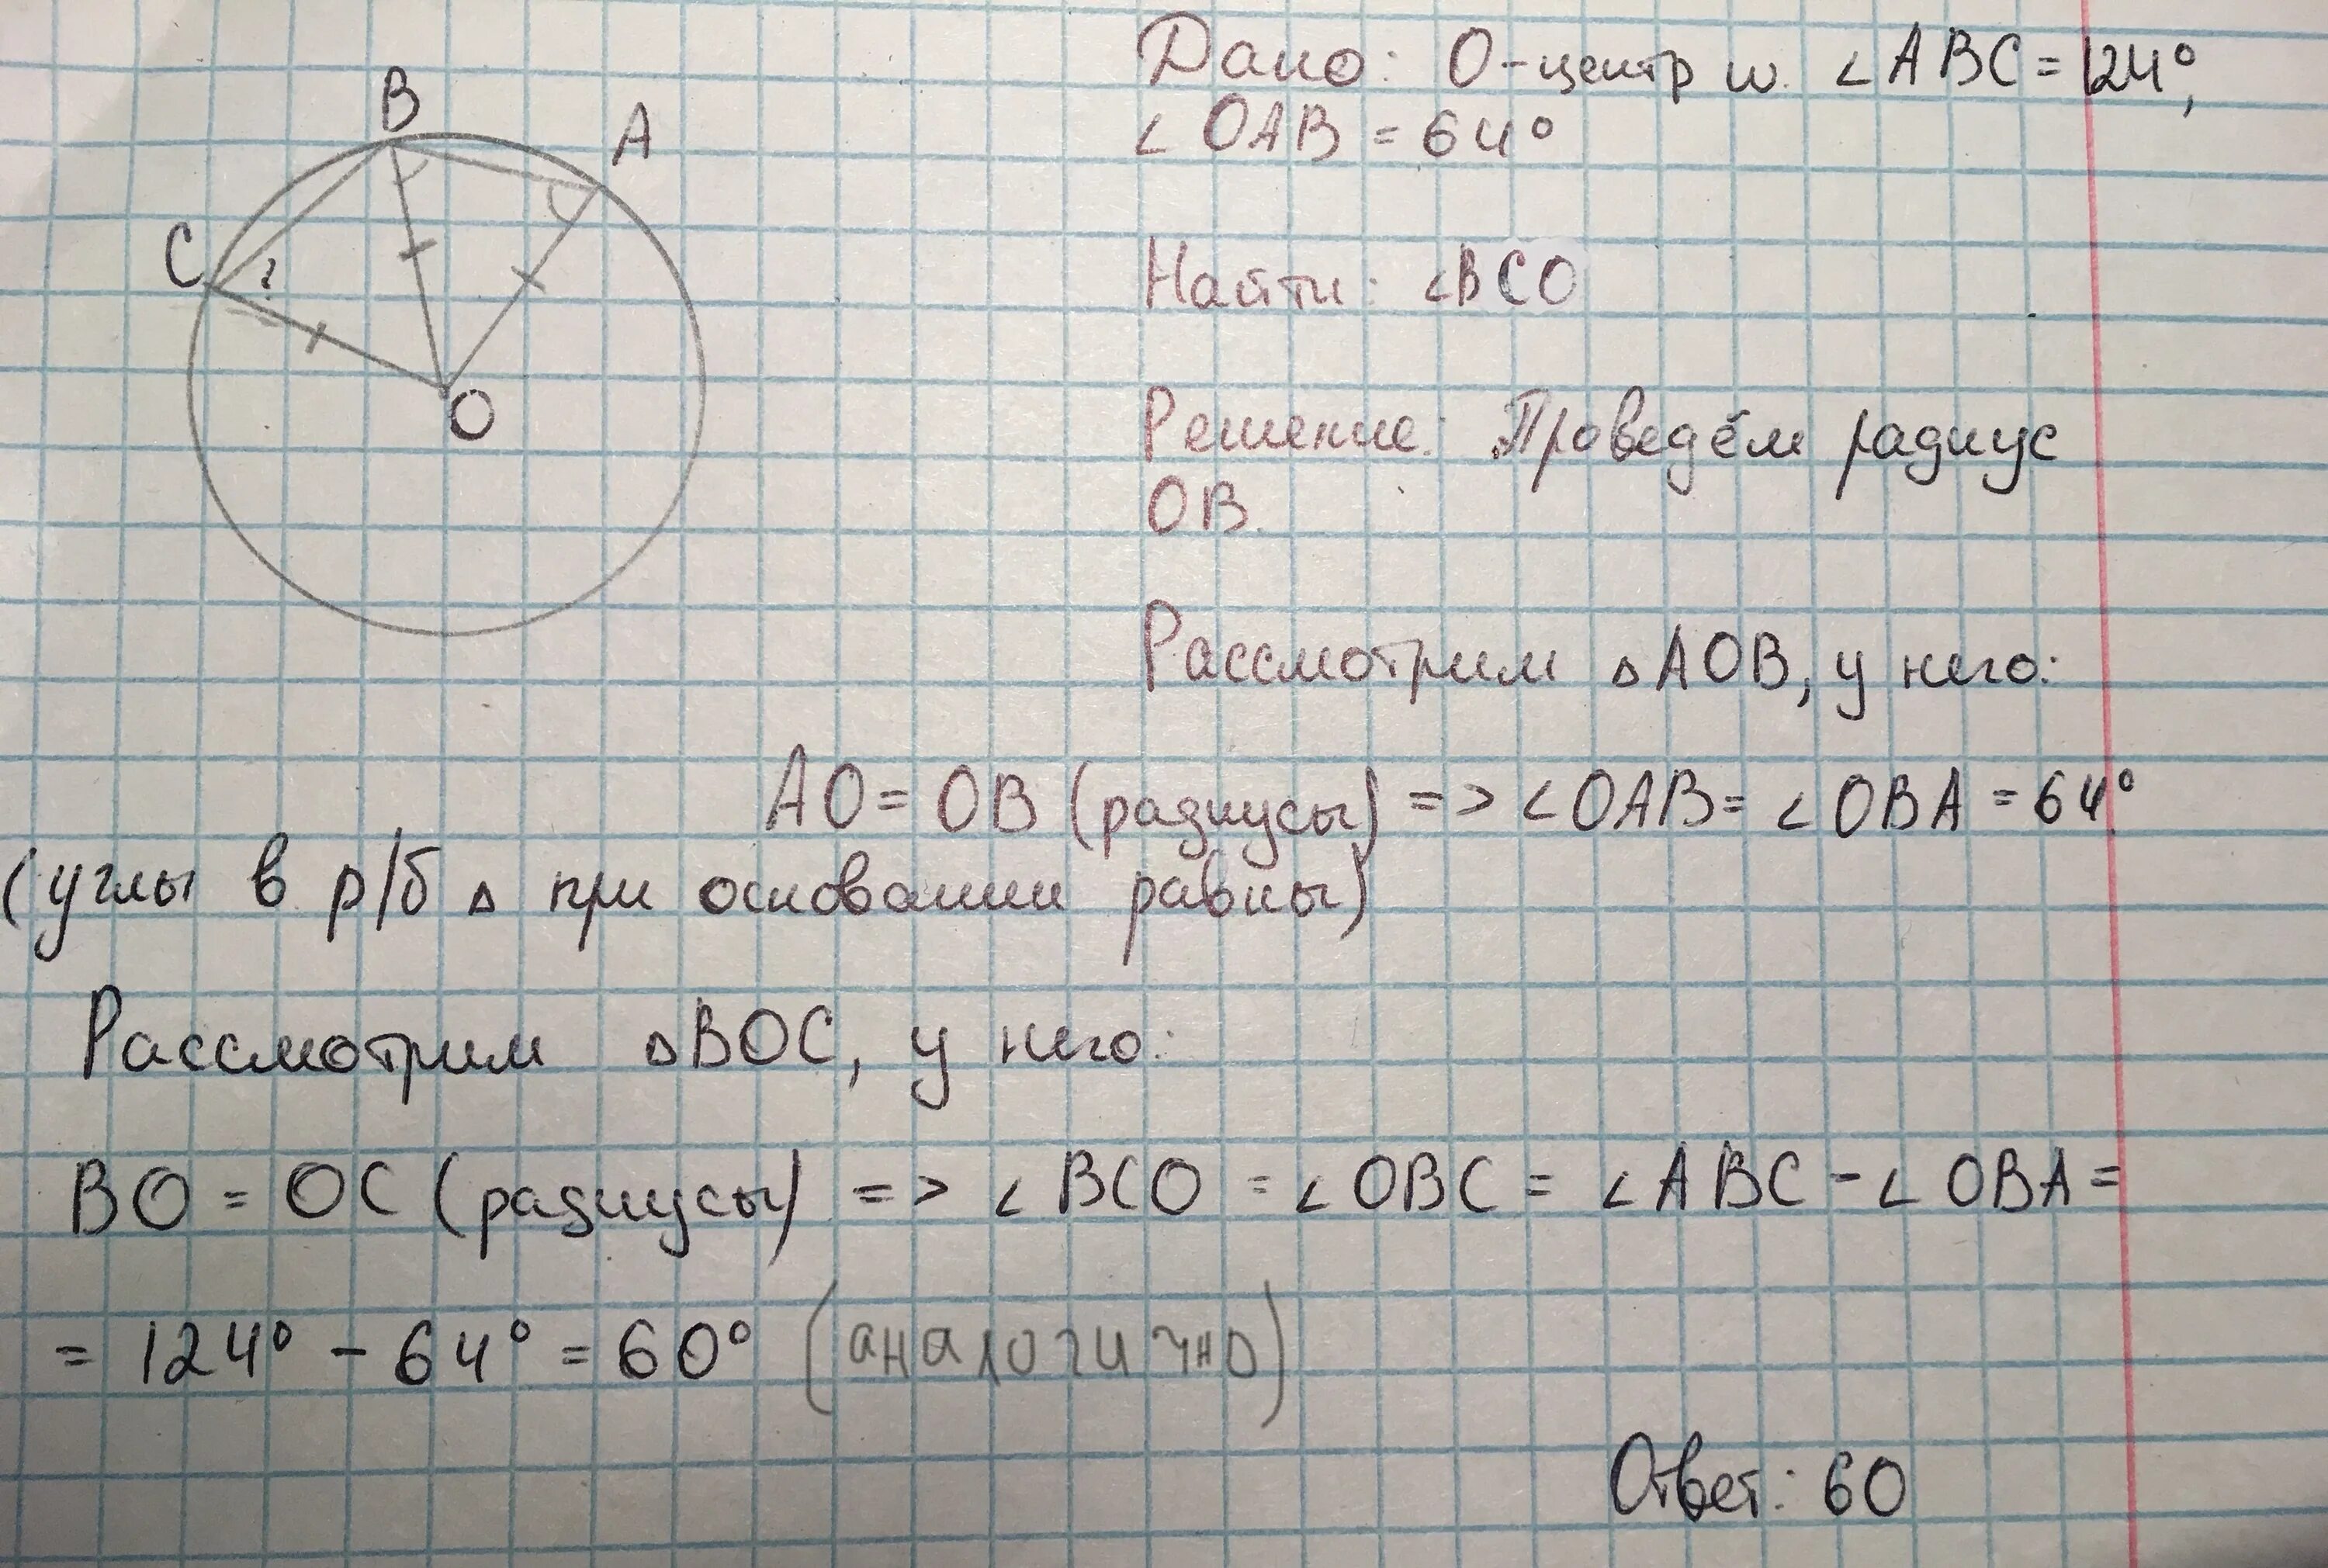 B
A
C
?
O
Дано: O-центр w. ∠ABC = 124°,
∠OAB = 64°
Найти: ∠BCO
Решение: Проведём радиус
OB.
Рассмотрим ▵AOB, у него:
AO = OB (радиусы) => ∠OAB = ∠OBA = 64°
(углы в р/б ▵ при основании равны)
Рассмотрим ▵BOC, у него:
BO = OC (радиусы) => ∠BCO = ∠OBC = ∠ABC - ∠OBA =
= 124° - 64° = 60° (аналогично)
Ответ: 60